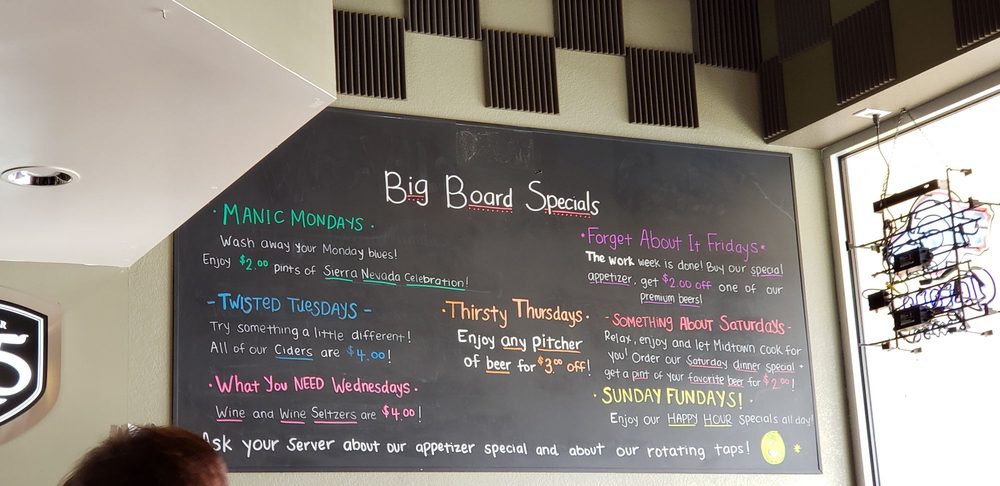 Big Board Specials
· MANIC MONDAYS ·
Wash away your Monday blues!
Enjoy $2.00 pints of Sierra Nevada Celebration!
- TWISTED TUESDAYS -
Try something a little different!
All of our Ciders are $4.00!
· What You NEED Wednesdays ·
Wine and Wine Seltzers are $4.00!
· Thirsty Thursdays ·
Enjoy any pitcher
of beer for $3.00 off!
· Forget About It Fridays ·
The work week is done! Buy our special
appetizer, get $2.00 off one of our
premium beers!
- SOMETHING ABOUT SATURDAYS -
Relax, enjoy and let Midtown Cook for
you! Order our Saturday dinner special +
get a pint of your favorite beer for $2.00!
· SUNDAY FUNDAYS! ·
Enjoy our HAPPY HOUR specials all day!
Ask your server about our appetizer special and about our rotating taps!
5